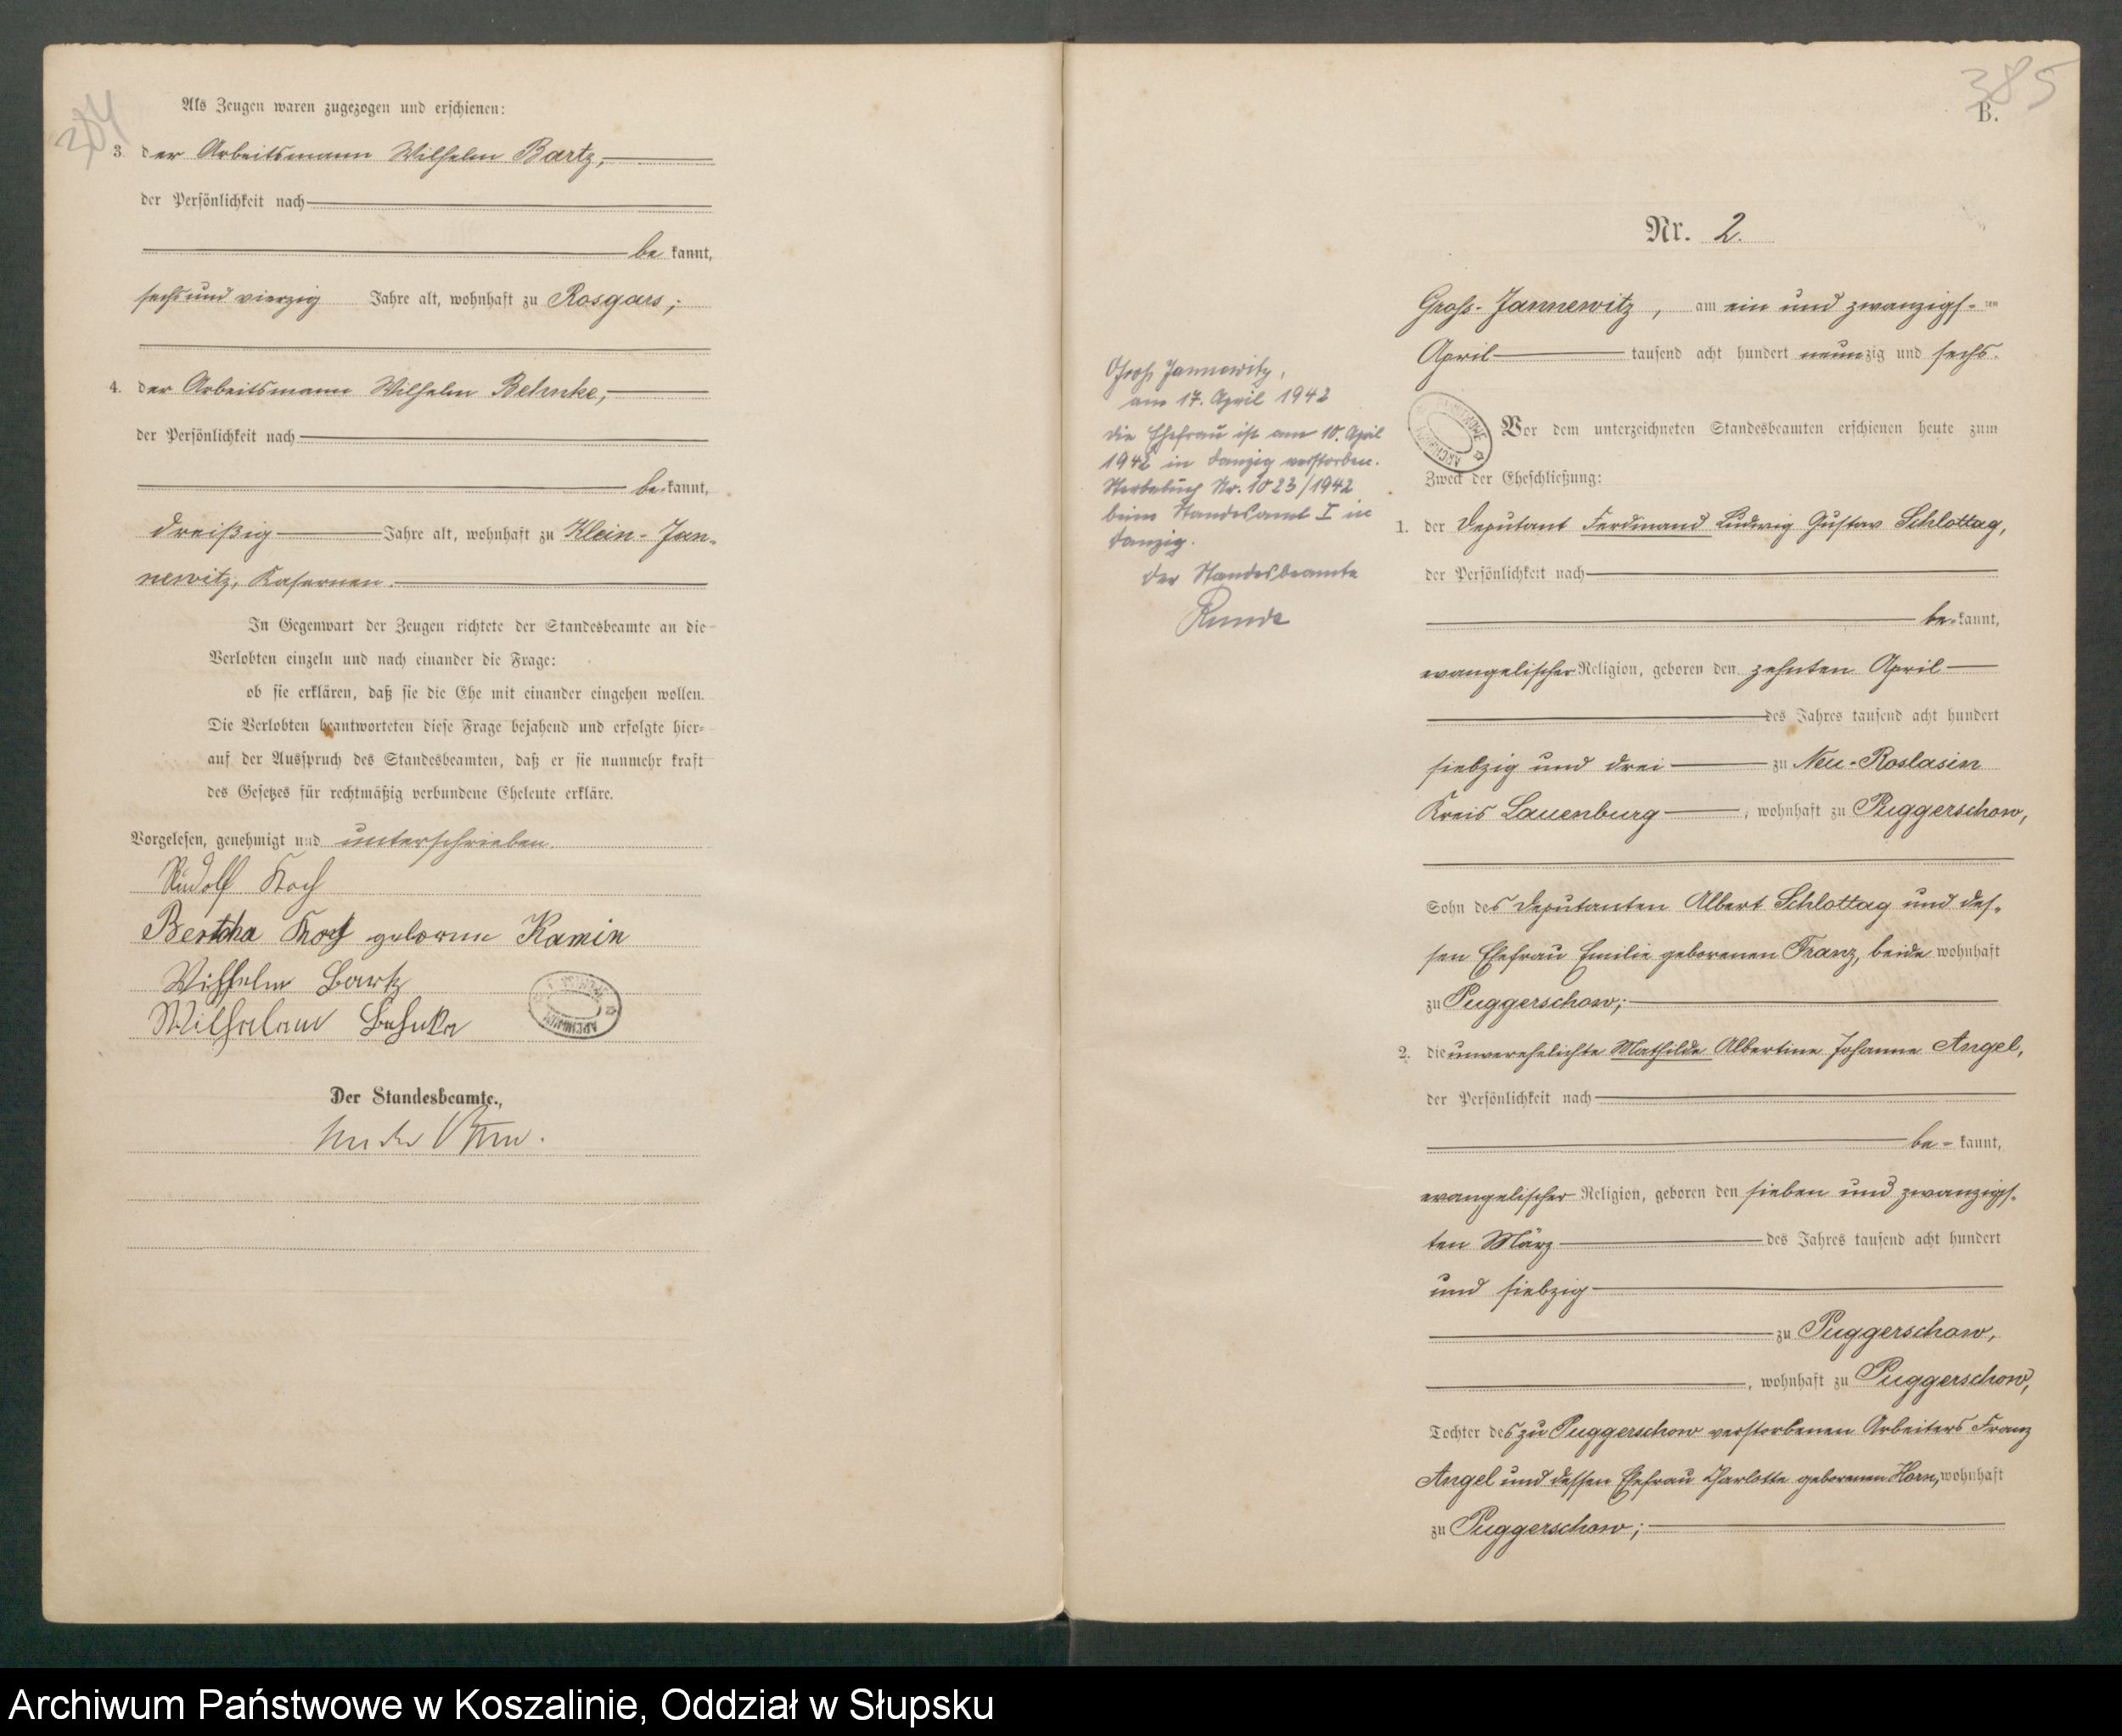 384
Als Zeugen waren zugezogen und erschienen:
3. der Arbeitsmann Wilhelm Bartz,
der Persönlichkeit nach
be kannt,
sechs und vierzig Jahre alt, wohnhaft zu Rosgars;
4. der Arbeitsmann Wilhelm Behnke,
der Persönlichkeit nach
be kannt,
dreißig Jahre alt, wohnhaft zu Klein-Jan-
newitz, Kasernen.
In Gegenwart der Zeugen richtete der Standesbeamte an die
Verlobten einzeln und nach einander die Frage:
ob sie erklären, daß sie die Ehe mit einander eingehen wollen.
Die Verlobten beantworteten diese Frage bejahend und erfolgte hier-
auf der Ausspruch des Standesbeamten, daß er sie nunmehr kraft
des Gesetzes für rechtmäßig verbundene Eheleute erkläre.
Vorgelesen, genehmigt und unterschrieben.
Rudolf Koch
Bertcha Koch geborene Kamin
Wilhelm Bartz
Wilhelm Behnke
ARCHIWUM
Der Standesbeamte.
385
B.
Nr. 2.
Groß-Jannewitz, am ein und zwanzigs-ten
April tausend acht hundert neunzig und sechs.
ARCHIWUM
Vor dem unterzeichneten Standesbeamten erschienen heute zum
Zweck der Eheschließung:
1. der Deputant Ferdinand Ludwig Gustav Schlottag,
der Persönlichkeit nach
be kannt,
evangelischer Religion, geboren den zehnten April
des Jahres tausend acht hundert
siebzig und drei zu Neu-Roslasin
Kreis Lauenburg, wohnhaft zu Puggerschow,
Sohn des Deputanten Albert Schlottag und des-
sen Ehefrau Emilie geborenen Franz, beide wohnhaft
zu Puggerschow;
2. die unverehelichte Mathilde Albertine Johanne Angel,
der Persönlichkeit nach
be- kannt,
evangelischer Religion, geboren den sieben und zwanzigs-
ten März des Jahres tausend acht hundert
und siebzig
zu Puggerschow,
, wohnhaft zu Puggerschow,
Tochter des zu Puggerschow verstorbenen Arbeiters Franz
Angel und dessen Ehefrau Charlotte geborenen Horn, wohnhaft
zu Puggerschow;
Groß Jannewitz,
am 17. April 1942
Die Ehefrau ist am 10. April
1942 in Danzig verstorben.
Sterbebuch Nr. 1023/1942
beim Standesamt I in
Danzig.
Der Standesbeamte
Runde
Archiwum Państwowe w Koszalinie, Oddział w Słupsku